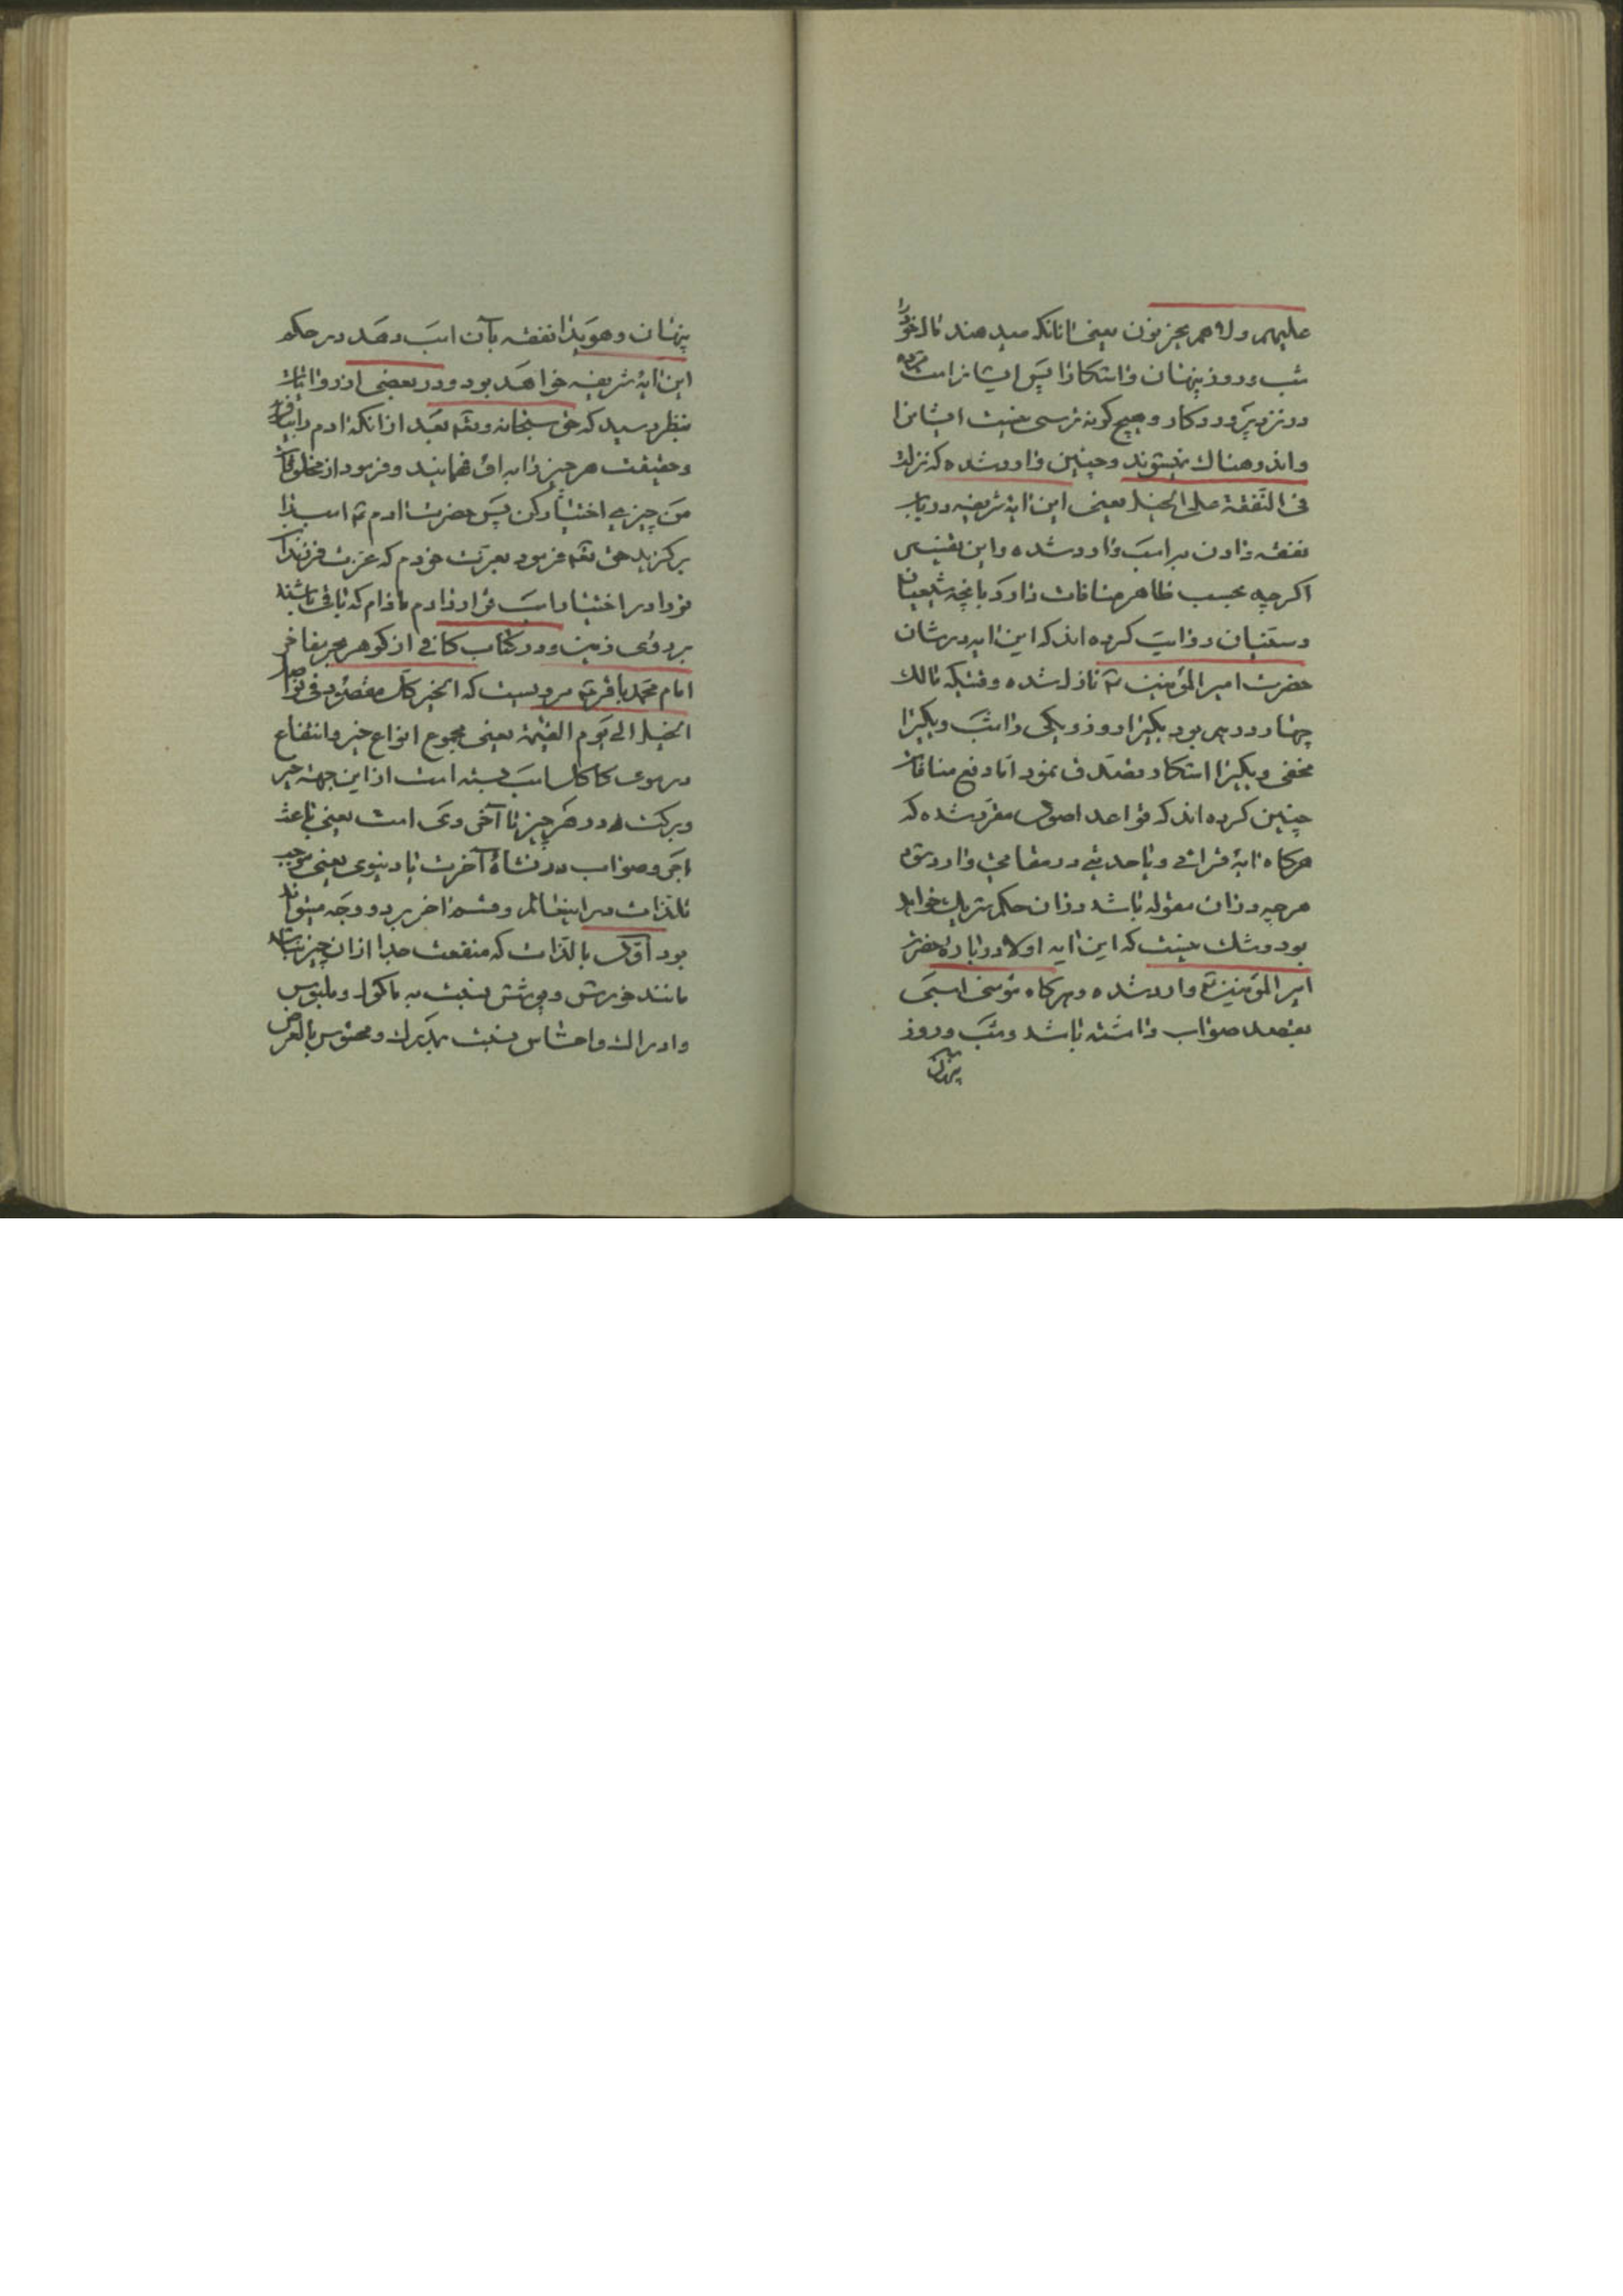 علیهم ولا هم یحزنون یعنی انانکه میدهند مال خود را
شب و روز پنهان و اشکارا پس ایشانراست مزد
در نزد پروردگار و هیچ گونه ترسی نیست ایشانرا
و اندوهناک نمیشوند و چنین وارد شده که نزلت
فی النفقة علی الخیل یعنی این ایه شریفه در باب
نفقه دادن بر اسب وارد شده و این تفسیر
اگرچه بحسب ظاهر منافات دارد بانچه شیعیان
و سنیان روایت کرده اند که این ایه در شان
حضرت امیر المؤمنین ع نازل شده وقتیکه مالک
چهار درهم بود یکیرا روز و یکی را شب و یکیرا
مخفی و یکیرا اشکار تصدق نمود اما رفع منافات
چنین کرده اند که قواعد اصول مقرر شده که
هرگاه ایهٔ قرانی و یا حدیثی در مقامی وارد شود
هرچه در ان مقوله باشد در ان حکم شریک خواهد
بود و شک نیست که این ایه اولا در بارهٔ حضرت
امیر المؤمنین ع وارد شده و هرگاه مؤمنی اسبی
بقصد صواب داشته باشد و شب و روز
پنهان
پنهان و هویدا نفقه بآن اسب دهد در حکم
این ایهٔ شریفه خواهد بود و در بعضی از روایات
بنظر رسید که حق سبحانه و تعه بعد از انکه ادم را بیافرید
و حقیقت هر چیز را به او فهمانید و فرمود از مخلوقات
من چیزی اختیار کن پس حضرت ادم ع اسب را
برگزید حق تعه فرمود بعزت خودم که عزت فرزندان
تو را در اختیار اسب قرار دادم مادام که باقی باشند
بر روی زمین و در کتاب کافی از گوهر بحر مفاخر
امام محمد باقر ع مرویست که الخیر کل معقود فی نواصی
الخیل الی یوم القیمة یعنی مجموع انواع خیر و انتفاع
در موی کاکل اسب بسته است از این جهة خیر
و برکت در هر چیز تا اخروی است یعنی باعث
اجر و صواب در نشاهٔ آخرت یا دنیوی یعنی موجب
تلذات در اینعالم و قسم اخر بر دو وجه میتواند
بود اوّل بالذات که منفعت جدا از ان چیز نباشد
مانند خورش و پوشش نسبت به ماکول و ملبوس
و ادراک و احساس نسبت بمدرک و محسوس بالعرض